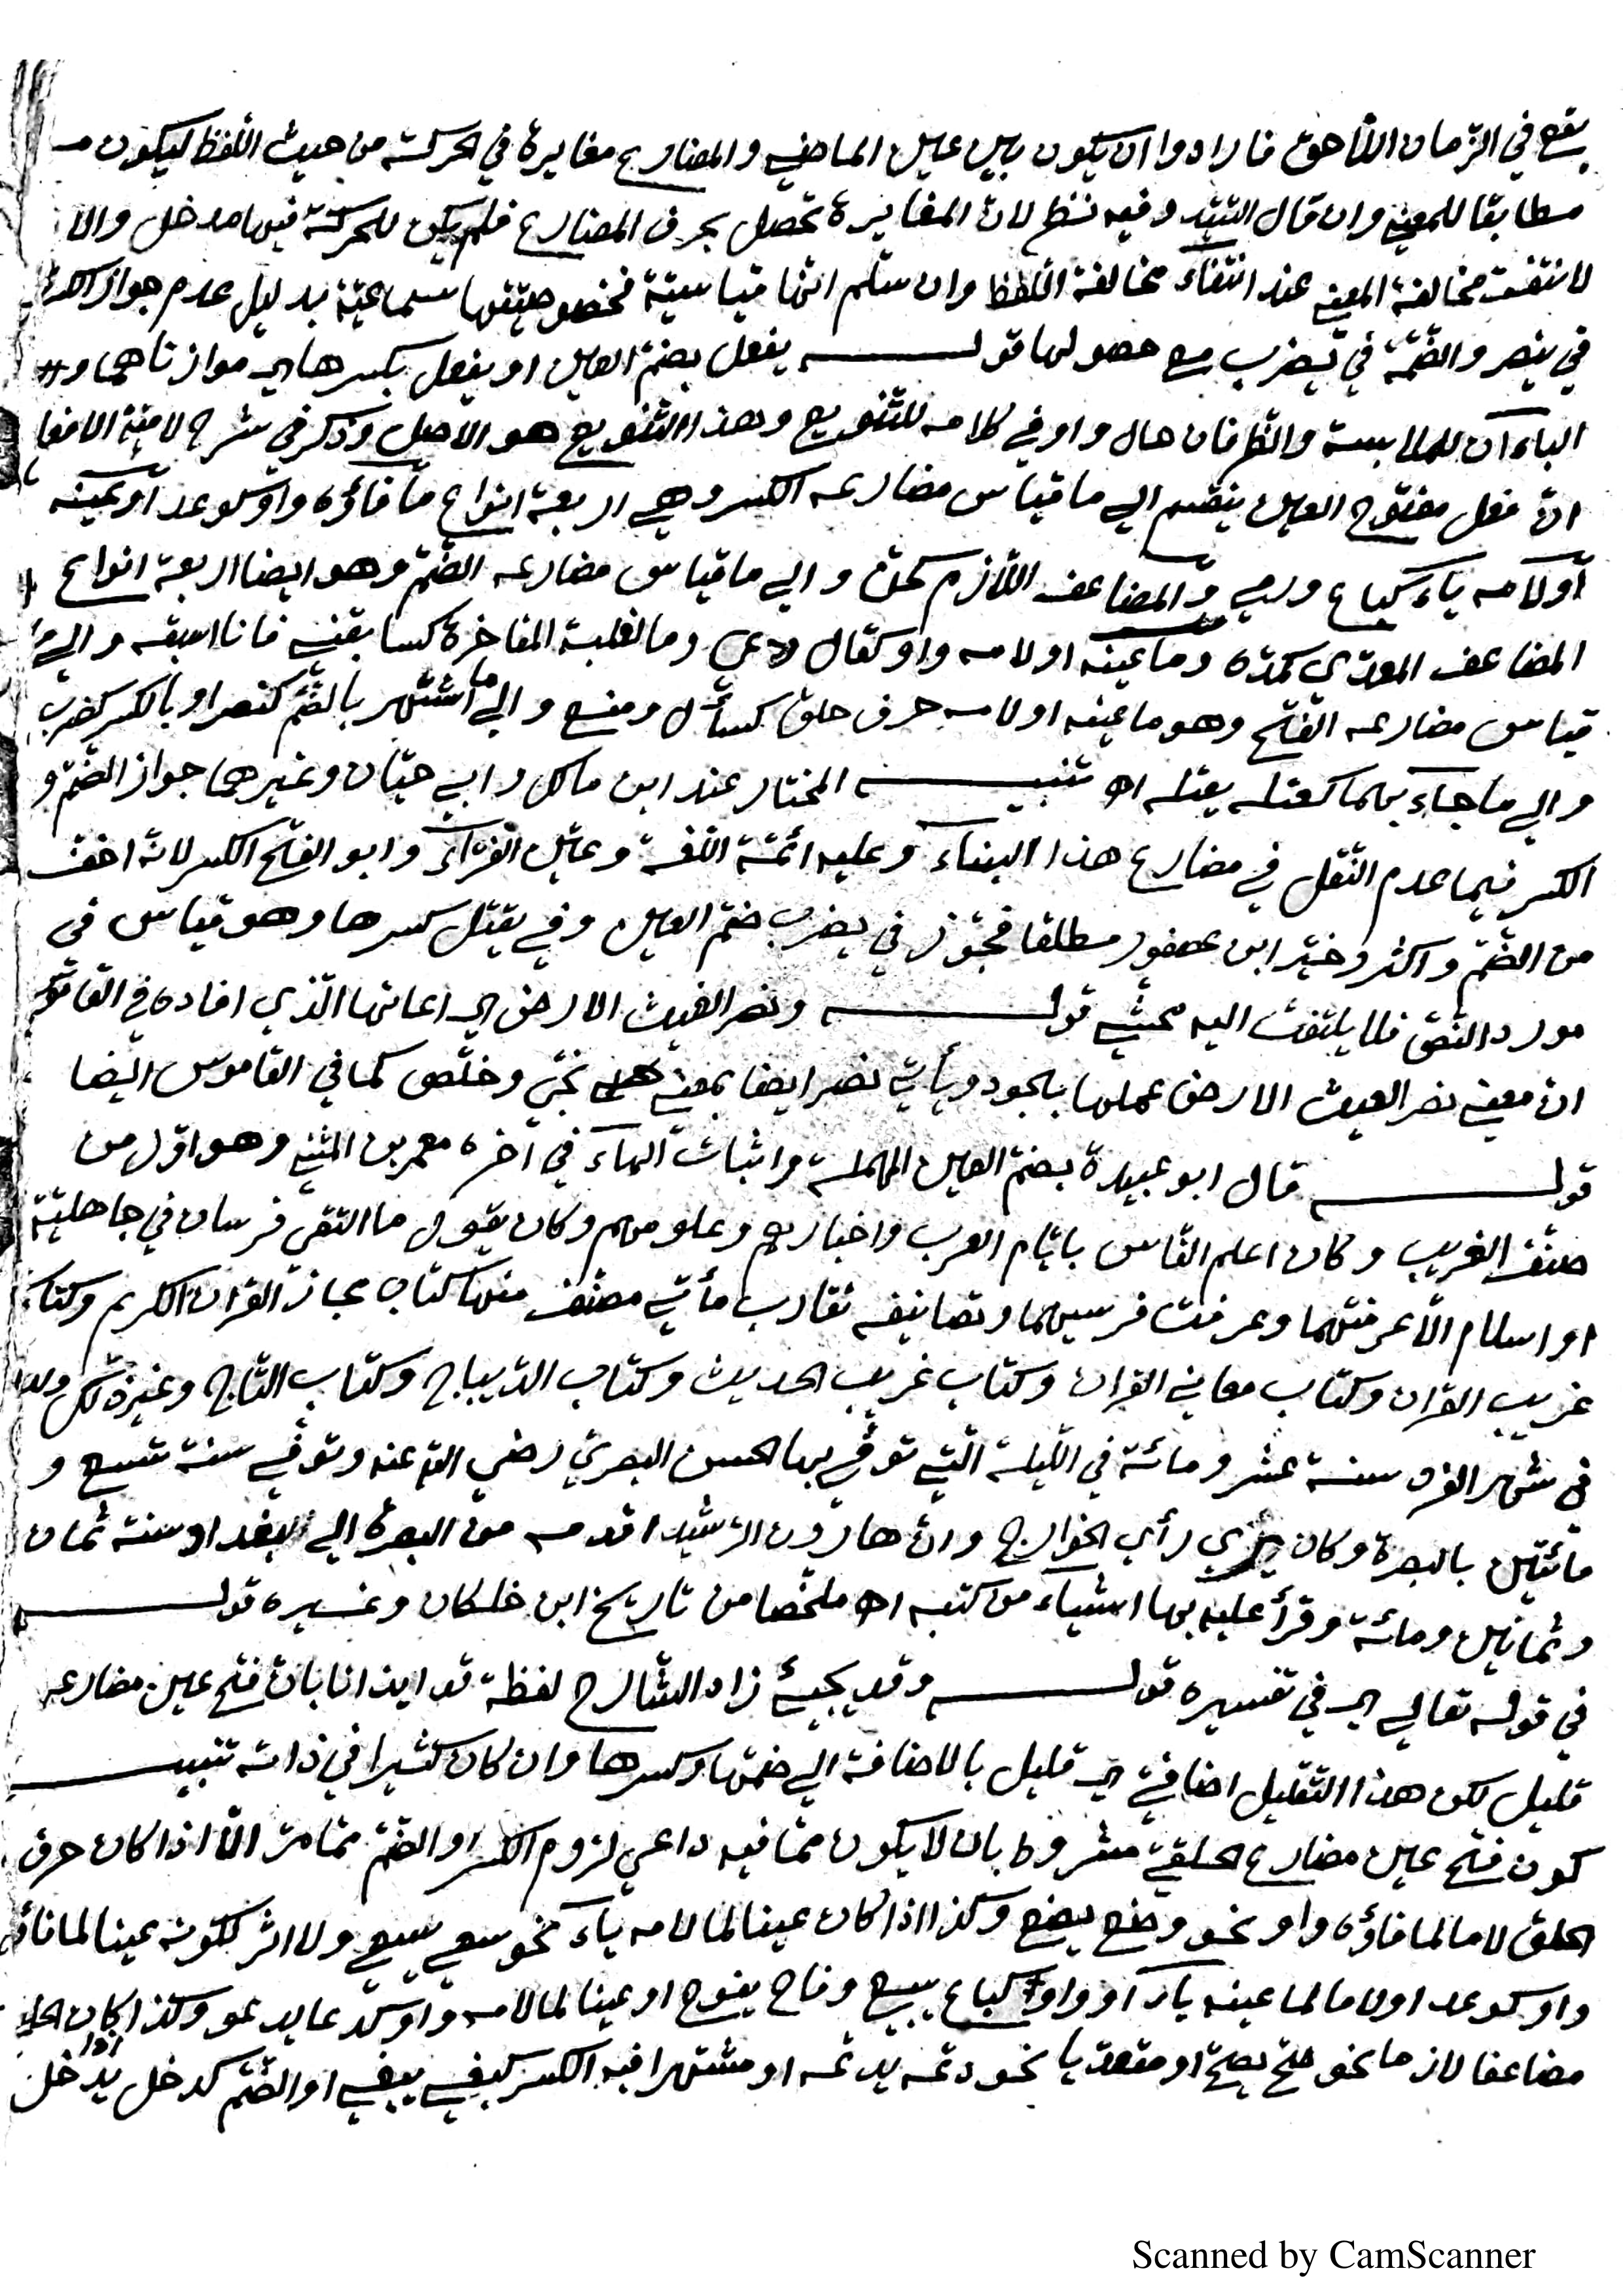 يقع في الزّمان اللّاحق فارادوا ان يكون بين عين الماضي والمضارع مغايرة في الحركة من حيث اللّفظ ليكون
مطابقا للمعنى وان قال السّيّد وفيه نظر لانّ المغايرة تحصل بحرف المضارع فلم يكن للحركة فيها مدخل والا
لانتفت مخالفة المعنى عند انتفآء مخالفة اللّفظ وان سلّم انّها قياسيّة فخصوصيّتها سماعيّة بدليل عدم جواز الكسر
في ينصر والضّمّة في يضرب مع حصولها قولـــه يفعل بضمّ العين او يفعل بكسرها اي موازناهما و
الباءان للملابسة والظرفان حال واو في كلامه للتّنويع وهذا التّنويع هو الاصل وذكر في شرح لاميّة الافعا
انّ فعل مفتوح العين ينقسم الي ما قياس مضارعه الكسر وهي اربعة انواع ما فاؤه واو كوعد او عينه
أو لامه يآء كباع ورمى والمضاعف اللّازم كحنّ والي ما قياس مضارعه الضّمّ وهو ايضا اربعة انواع
المضاعف المعدّي كمدّه وما عينه او لامه واو كقال ودعى وما لغلبة المفاخرة كسابقني فانا اسبقه والي ما
قياس مضارعه الفتح وهو ما عينه او لامه حرف حلق كسأل ومنع والي ما اشتهر بالضّمّ كنصر او بالكسر كضرب
والي ما جآء بهما كعتله يعتله اه تنبيـــه المختار عند ابن مالك وابي حيّان وغيرهما جواز الضّمّ و
الكسر فيما عدم النّقل في مضارع هذا البنآء وعليه ائمّة اللّغة وعيّن الفرّآء وابو الفتح الكسر لانّه اخفّ
من الضّمّ واكثر وخيّر ابن عصفور مطلقا فجوّز في يضرب ضمّ العين وفي يقتل كسرها وهو قياس في
مورد النّصّ فلا يلتفت اليه محشّي قولـــه ونصر الغيث الارض اي اعانها الّذي افاده في القاموس
انّ معنى نصر الغيث الارض عمها بالجود ويأتي نصر ايضا بمعنى نجّى وخلّص كما في القاموس ايضا
قولـــه قال ابو عبيدة بضمّ العين المهملة واثبات الهآء في آخره معمر بن المثنى وهو اوّل من
صنّف الغريب وكان اعلم النّاس بايّام العرب واخبارهم وعلومهم وكان يقول ما التقى فرسان في جاهليّة
او اسلام الّا عرفتهما وعرفت فرسيهما وتصانيفه تقارب مأتي مصنّف منها كتاب مجاز القران الكريم وكتاب
غريب القران وكتاب معاني القران وكتاب غريب الحديث وكتاب الدّيباج وكتاب التّاج وغير ذلك ولد
في شهر سنة عشر ومائة في اللّيلة الّتي توفّي بها الحسن البصريّ رضي الله عنه وتوفّي سنة تسع و
مائتين بالبصرة وكان يري رأي الخوارج وانّ هارون الرّشيد اقدمه من البصرة الي بغداد سنة ثمان
وثمانين ومائة وقرأ عليه بها اشياء من كتبه اه ملخّصا من تاريخ ابن خلكان وغيره قولـــه
في قوله تعالي اي في تفسيره قولـــه وقد يجيئ زاد الشّارح لفظة قد ايذانا بانّ فتح عين مضارعه
قليل لكن هذا التّقليل اضافيّ اي قليل بالاضافة الي ضمّها وكسرها وان كان كثيرا في ذاته تنبيـــه
كون فتح عين مضارع الحلقيّ مشروط بان لا يكون ممّا فيه داعي لزوم الكسر او الضّمّ ممّا مرّ الّا اذا كان حرف
الحلق لاما لما فاؤه واو نحو وضع يضع وكذا اذا كان عينا لما لامه يآء نحو سعى يسعى ولا اثر لكونه عينا لما فاؤه
واو كوعد او لاما لما عينه يآء أو واو كباع يبيع وفاح يفوح او عينا لما لامه واو كدعا يدعو وكذا اذا كان الحلقي
مضاعفا لازما نحو صحّ يصحّ او متعدّيا نحو دعّه يدعّه او مشتهرا فيه الكسر كبغى يبغي او الضّمّ كدخل يدخل
Scanned by CamScanner